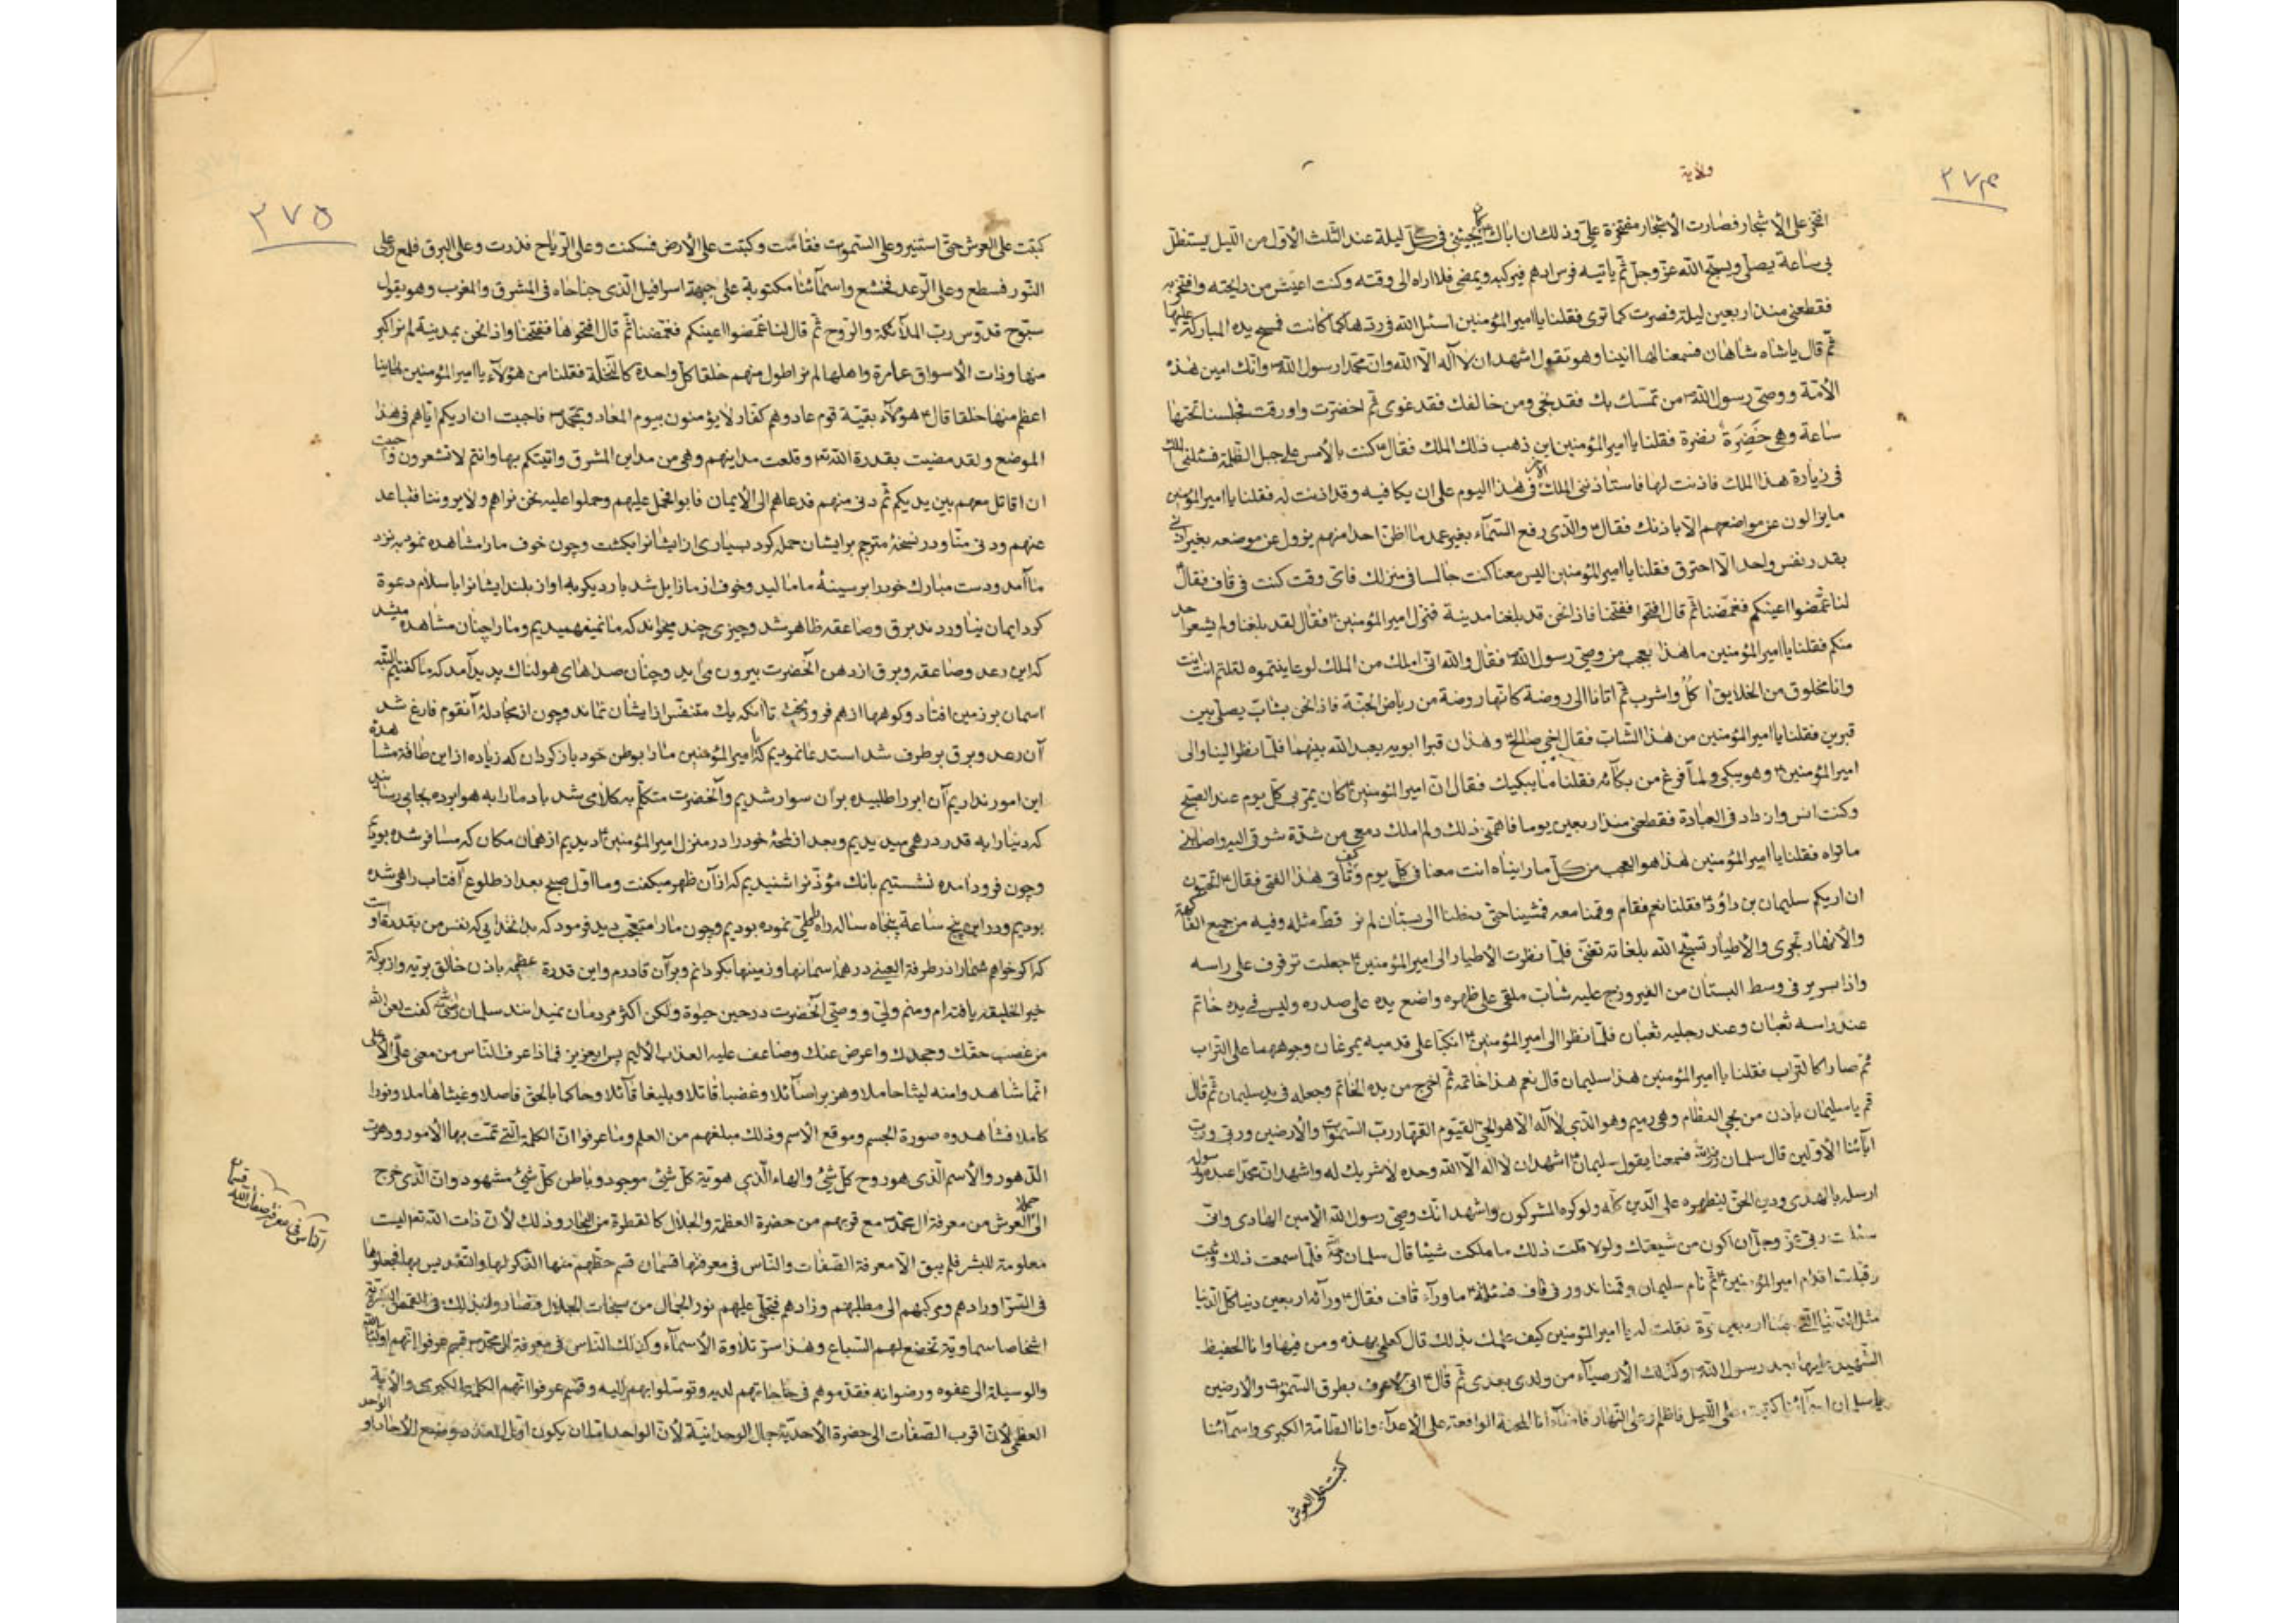 ولاية
٢٧٤
افتخر على الأشجار فصارت الأشجار مفتخرة علىّ وذلك ان اباك كان يجيئنى فى كلّ ليلة عند الثّلث الأوّل من اللّيل يستظلّ
بى ساعة يصلّى ويسبّح اللّه عزّ وجلّ ثمّ ياتيه فرس ادهم فيركبه ويمضى فلا اراه الى وقته وكنت اعيش من رايحته وافتخر به
فقطعنى منذ اربعين ليلة فصرت كما ترى فقلنا يا امير المؤمنين اسئل اللّه فى ردّها كما كانت فمسح يده المباركة عليها
ثمّ قال ياشاه شاهان فسمعنا لها انينا وهو تقول اشهد ان لا آله الّا اللّه وان محمّدا رسول اللّه وانّك امين هذه
الأمّة ووصىّ رسول اللّه من تمسّك بك فقد نجى ومن خالفك فقد غوى ثمّ اخضرّت واورقت فجلسنا تحتها
ساعة وهى خَضِرَة نضرة فقلنا يا امير المؤمنين اين ذهب ذلك الملك فقال كنت بالأمس على جبل الظّلمة فسئلنى الملك
فى زيادة هذا الملك فاذنت لها فاستأذننى الملك فى هذا اليوم على ان يكافيه وقد اذنت له فقلنا يا امير المؤمنين
مايزالون عن مواضعهم الّا باذنك فقال والّذى رفع السّمآء بغير عمد ما اظنّ احدا منهم يزول عن موضعه بغير اذنى
بقدر نفس واحد الّا احترق فقلنا يا امير المؤمنين اليس معنا كنت جالسا فى منزلك فاىّ وقت كنت فى قاف فقال
لنا غمّضوا اعينكم فغمّضنا ثمّ قال افتحوا ففتحنا فاذا نحن قد بلغنا مدينة فنزل امير المؤمنين فقال لقد بلغنا ولم يشعر احد
منكم فقلنا يا امير المؤمنين ما هذا بعجب من وصىّ رسول اللّه فقال واللّه انّى املك من الملك لو عاينتموه لقلتم انت انت
وانا مخلوق من الخلايق اٰكُلُ واشرب ثمّ اتانا الى روضة كانّها روضة من رياض الجنّة فاذا نحن بشابّ يصلّى بين
قبرين فقلنا يا امير المؤمنين من هذا الشّابّ فقال اخى صالح وهذان قبرا ابويه يعبد اللّه بينهما فلمّا نظر الينا والى
امير المؤمنين وهو يبكى ولمّا فرغ من بكآئه فقلنا ما يبكيك فقال انّ امير المؤمنين كان يمرّ بى كلّ يوم عند الصّبح
وكنت انس وازداد فى العبادة فقطعنى منذ اربعين يوما فاهمّنى ذلك ولم املك دمعى من شدّة شوقى اليه واصابنى
ماتراه فقلنا يا امير المؤمنين هذا هو العجب من كلّ ما رايناه انت معنا فى كلّ يوم وتأتى هذا الفتى فقال اتحبّون
ان اريكم سليمان بن داؤد فقلنا نعم فقام وقمنا معه فمشينا حتّى دخلنا الى بستان لم نر قطّ مثله وفيه من جميع الفاكهة
والأنهار تجرى والأطيار تسبّح اللّه بلغاته تغنّى فلمّا نظرت الأطيار الى امير المؤمنين جعلت ترفرف على راسه
واذا سرير فى وسط البستان من الفيروزج عليه شابّ ملقى على ظهره واضع يده على صدره وليس فى يده خاتم
عند راسه ثعبان وعند رجليه ثعبان فلمّا نظرا الى امير المؤمنين انكبّا على قدميه يمرغان وجوههما على التّراب
ثمّ صارا كالتّراب فقلنا يا امير المؤمنين هذا سليمان قال نعم هذا خاتمه ثمّ اخرج من يده الخاتم وجعله فى يد سليمان ثمّ قال
قم ياسليمان باذن من يحيى العظام وهى رميم وهو الّذى لا آله الّا هو الحىّ القيّوم القهّار ربّ السّموات والأرضين وربّى وربّ
ابآئنا الأوّلين قال سلمان فسمعنا يقول سليمان اشهد ان لا اله الّا اللّه وحده لا شريك له واشهد انّ محمّدا عبده ورسوله
ارسله بالهدى ودين الحقّ ليظهره على الدّين كلّه ولو كره المشركون واشهد انّك وصىّ رسول اللّه الأمين الهادى وانّى
سئلت ربّى عزّ وجلّ ان اكون من شيعتك ولولا قلت ذلك ما ملكت شيئا قال سلمان فلمّا سمعت ذلك وثبت
وقبّلت اقدام امير المؤمنين ثمّ نام سليمان وقمنا ندور فى قاف فسئلته ما ورآء قاف فقال ورآئه اربعين دنيا كلّ الدّنيا
مثل الدّنيا الّتى جئنا اربعين مرّة فقلت له يا امير المؤمنين كيف علمك بذلك قال كعلمى بهذه ومن فيها وانا الحفيظ
الشّهيد عليها بعد رسول اللّه وكذلك الأوصيآء من ولدى بعدى ثمّ قال انّى لأعرف بطرق السّموات والأرضين
ياسلمان اسمآئنا كتبت على اللّيل فاظلم وعلى النّهار فاضآء انا المحنة الواقعة على الأعدآء وانا الطّامّة الكبرى واسمآئنا
كتبت على العرش
٢٧٥
كتبت على العرش حتّى استنير وعلى السّموات فقامت وكبتت على الأرض فسكنت وعلى الرّياح فذرت وعلى البرق فلمع وعلى
النّور فسطع وعلى الرّعد فخشع واسمآئنا مكتوبة على جبهة اسرافيل الّذى جناحاه فى المشرق والمغرب وهو يقول
سبّوح قدّوس ربّ الملآئكة والرّوح ثمّ قال لنا غمّضوا اعينكم فغمّضنا ثمّ قال افتحوها ففتحنا واذا نحن بمدينة لم نر اكبر
منها وذات الأسواق عامرة واهلها لم نر اطول منهم خلقا كلّ واحدة كالنّخلة فقلنا من هؤلآء يا امير المؤمنين فما راينا
اعظم منها خلقا قال هؤلآء بقيّة قوم عاد وهم كفّار لا يؤمنون بيوم المعاد وبمحمّد فاحببت ان اريكم ايّاهم فى هذا
الموضع ولقد مضيت بقدرة اللّه وقلعت مداينهم وهى من مداين المشرق واتيتكم بها وانتم لا تشعرون واحببت
ان اقاتل معهم بين يديكم ثمّ دنى منهم فدعاهم الى الأيمان فابوا فحمل عليهم وحملوا عليه نحن نراهم ولا يروننا فتباعد
عنهم ودنى منّا ودر نسخهٔ مترجم برايشان حمله كرد بسيارى از ايشانرا بكشت وچون خوف ما را مشاهده نمود به نزد
ما آمد ودست مبارك خود را بر سينهٔ ما ماليد وخوف از ما زايل شد بار ديگر به اواز بلند ايشانرا باسلام دعوة
كرد ايمان نياوردند برق وصاعقه ظاهر شد وچيزى چند ميخواند كه ما نميفهميديم وما را چنان مشاهده ميشد
كه اين رعد وصاعقه وبرق از دهن آنحضرت بيرون مى آيد وچنان صداهاى هولناك پديد آمد كه ما گفتيم البتّه
اسمان بر زمين افتاد وكوهها از هم فرو ريخت تا آنكه يك متنفّس از ايشان نماند وچون از مجادلهٔ آنقوم فارغ شد
آن رعد وبرق برطرف شد استدعا نموديم كه يا امير المؤمنين ما را بوطن خود بازگردان كه زياده از اين طاقة مشاهدهٔ
اين امور نداريم آن ابر را طلبيده بران سوار شديم وآنحضرت متكلّم به كلامى شد باد ما را به هوا برده بجايى رسانيد
كه دنيا را به قدر درهمى ميديديم وبعد از لمحهٔ خود را در منزل امير المؤمنين ديديم از همان مكان كه مسافر شده بوديم
وچون فرود آمده نشستيم بانك مؤذّن را شنيديم كه اذان ظهر ميگفت وما اوّل صبح بعد از طلوع آفتاب راهى شده
بوديم ودر اين پنج ساعة پنجاه ساله راه طى نموده بوديم وچون ما را متعجّب ديد فرمود كه بدان خدايى كه نفس من بقدرة اوست
كه اگر خواهم شما را در طرفة العينى در همهٔ اسمانها وزمينها بگردانم وبر آن قادرم واين قدرة عظيمه باذن خالق بريّه واز بركة
خير الخليقه يافته ام ومنم ولىّ ووصىّ آنحضرت در حين حيوة ولكن اكثر مردمان نميدانند سلمان گفت لعن اللّه
من غصب حقّك وجحدك واعرض عنك وضاعف عليه العذاب الأليم پس ايعزيز فماذا عرف النّاس من معنى علىّ الأعلى
انّما شاهدوا منه ليثا حاملا وهزبرا صآئلا وغضبا قاتلا وبليغا قآئلا وحاكما بالحقّ فاصلا وغيثا هاملا ونورا
كاملا فشاهدوه صورة الجسم وموقع الأسم وذلك مبلغهم من العلم وما عرفوا انّ الكلمة الّتى تمّت بها الأمور ودهرت
الدّهور والأسم الّذى هو روح كلّ شئ والهاء الّذى هو هويّة كلّ شئ موجود وباطن كلّ شئ مشهود وان الّذى خرج
الى حملة العرش من معرفة ال محمّد مع قربهم من حضرة العظمة والجلال كالقطرة من البحار وذلك لأنّ ذات اللّه تعالى ليست
معلومة للبشر فلم يبق الّا معرفة الصّفات والنّاس فى معرفتها قسمان قسم حظّهم منها الذّكر لها والتّقديس بها فجعلوها
فى السّرّ اورادهم ومركبهم الى مطلبهم وزادهم فتجلّى عليهم نور الجمال من سبحات الجلال فصاروا لذلك فى القمص البشريّة
اشخاصا سماوية تخضع لهم السّباع وهذا سرّ تلاوة الأسمآء وكذلك النّاس فى معرفة ال محمّد قسم عرفوا انّهم اوليآء اللّه
والوسيلة الى عفوه ورضوانه فقدّموهم فى حاجاتهم لديه وتوسّلوا بهم اليه وقسم عرفوا انّهم الكلمة الكبرى والأية
العظمى لأنّ اقرب الصّفات الى حضرة الأحديّة جمال الوحدانيّة لأنّ الواحد امّا ان يكون اوّل العدد ومنبع الأحاد او الواحد
النّاس فى معرفة صفات اللّه قسمان